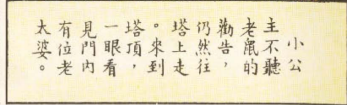 小公
主不聽
老鼠的
勸告，
仍然往
塔上走
。來到
塔頂，
一眼看
見門內
有位老
太婆。